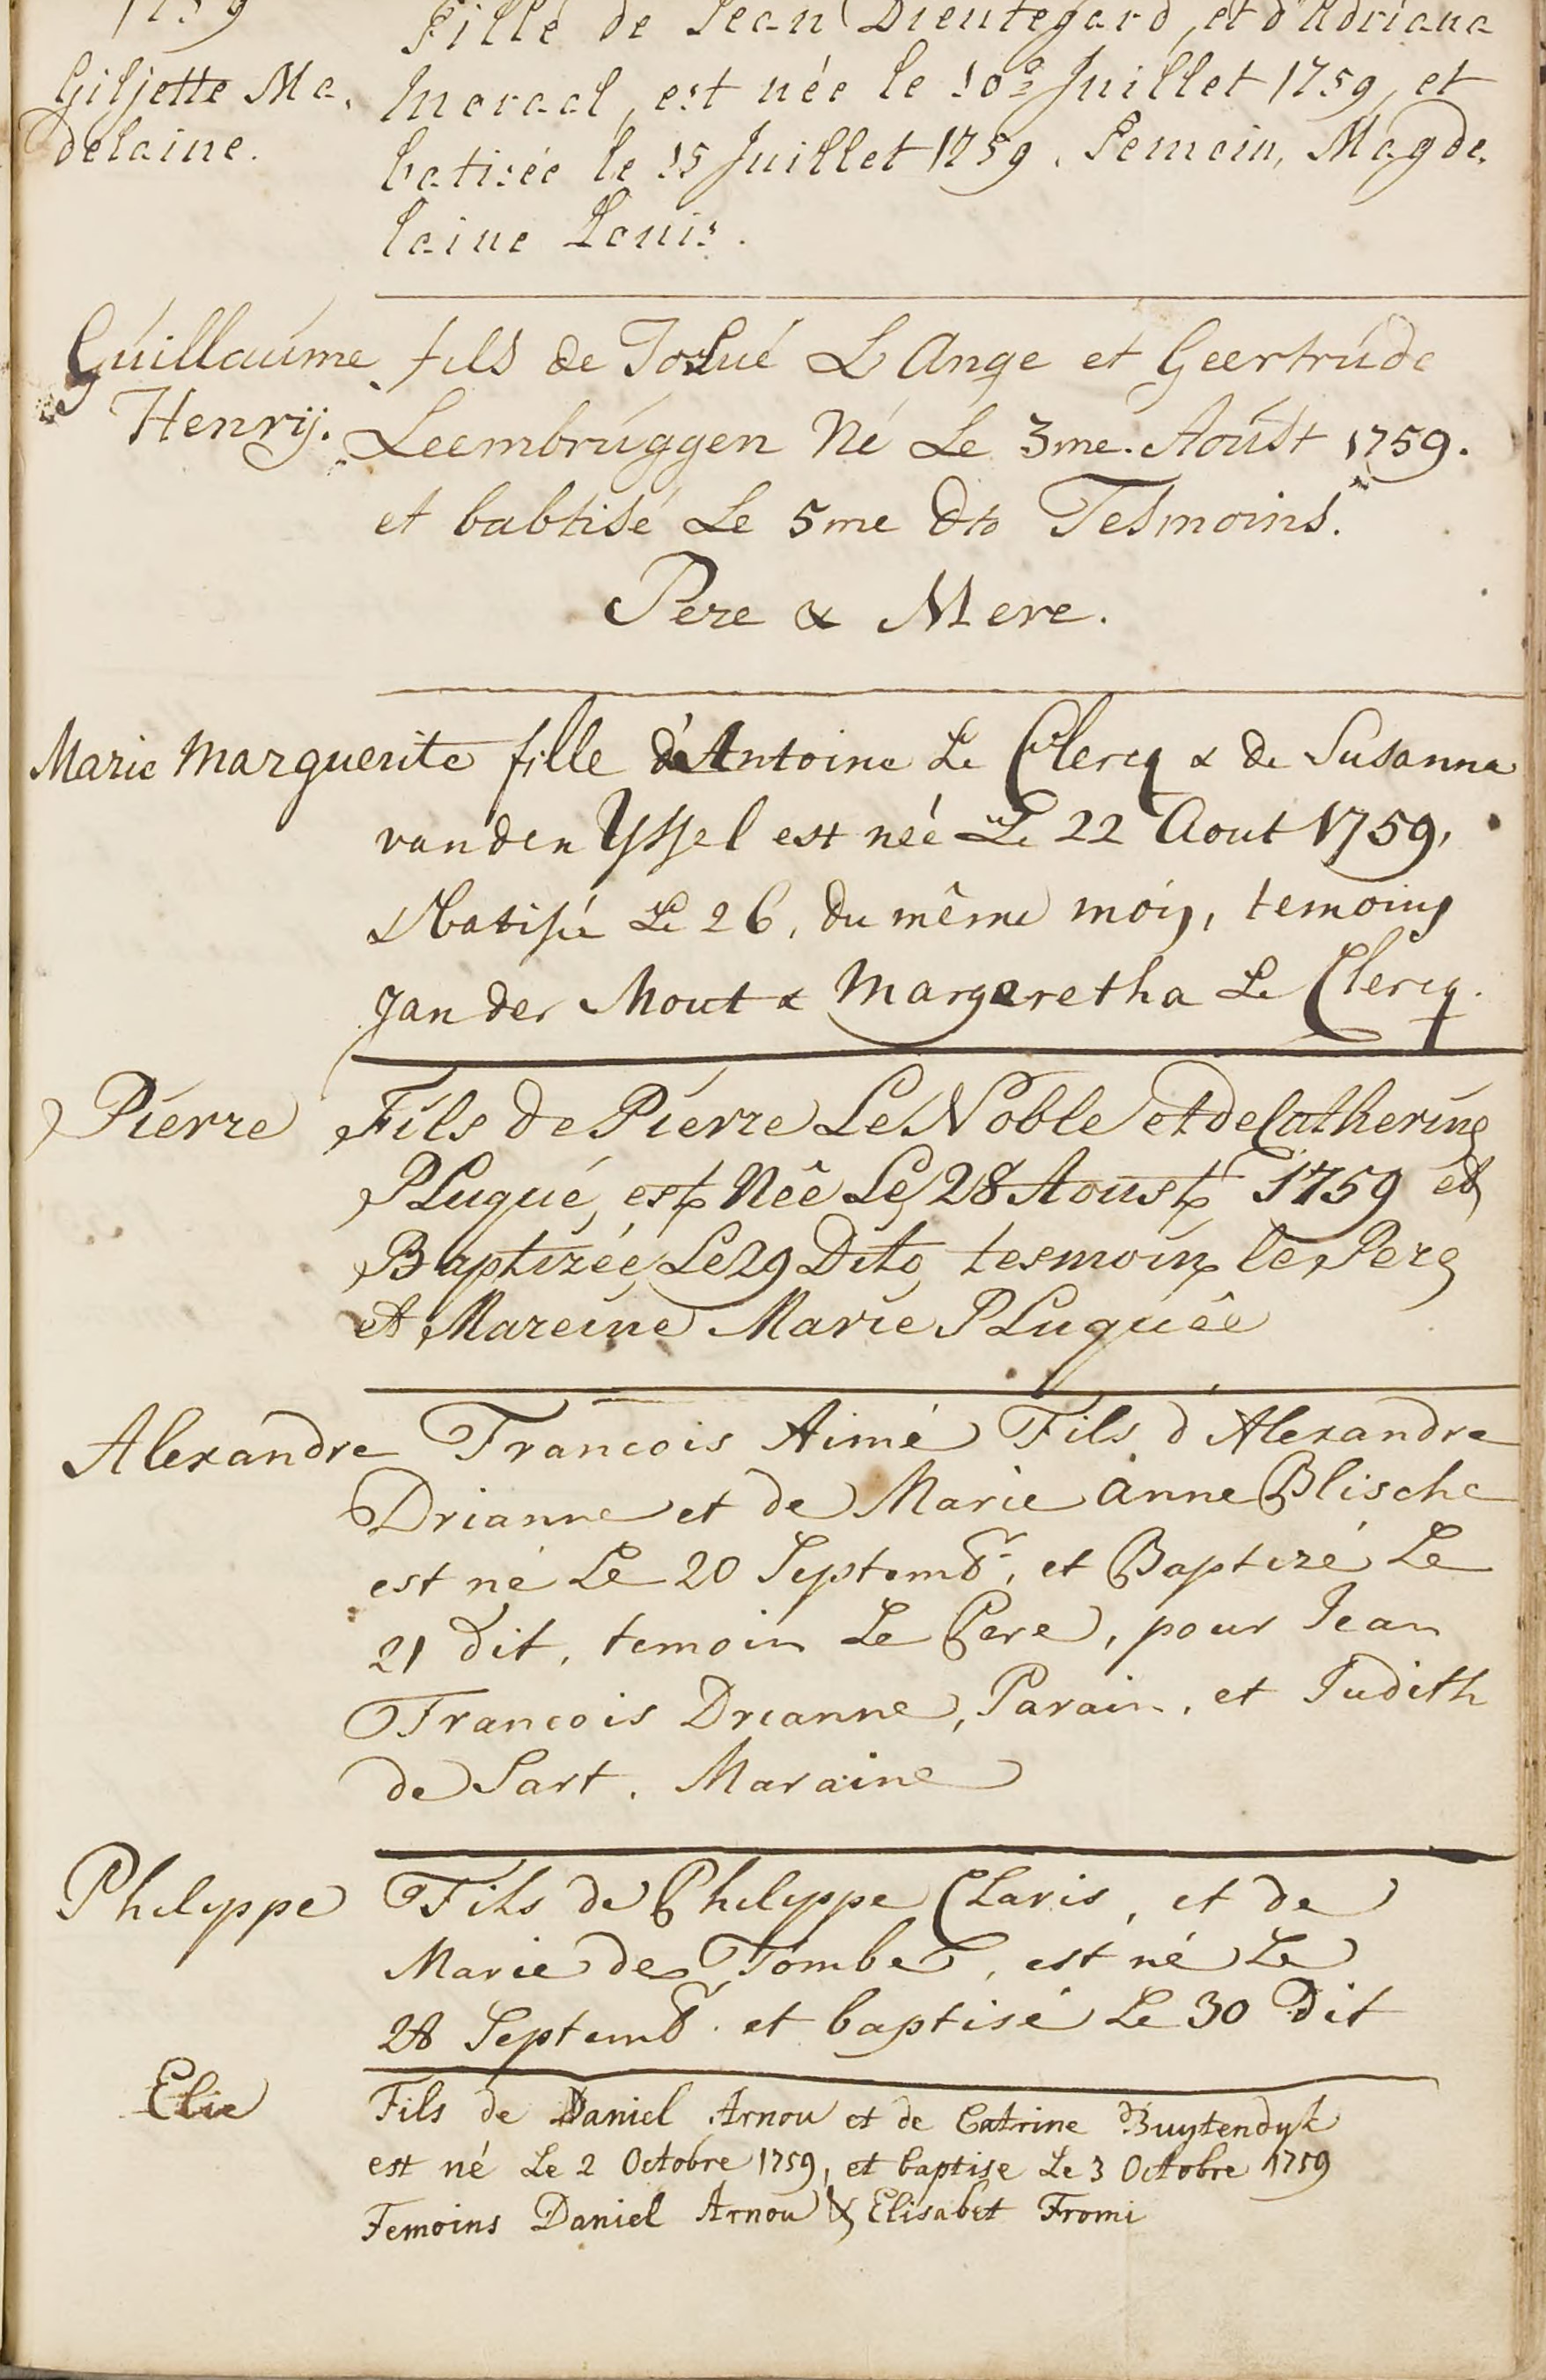 1759
Fille de Jean Dieutegard, et d'Adriana
Giljette Ma. Moraal, est née le 10e Juillet 1759, et
delaine. batisée le 15 Juillet 1759. Temoin, Magde.
laine Louis.
Guillaume fils de Josué L Ange et Geertrude
Henrij. Leembruggen Né Le 3me. Aoust 1759.
et babtisé Le 5me Dto Tesmoins.
Pere & Mere.
Marie Marguerite fille d'Antoine Le Clercq & de Susanna
van den Yssel est neé Le 22 Aout 1759,
& batisée Le 26, du même mois, temoins
Jan der Mout & Margaretha Le Clercq.
Pierre Fils de Pierre Le Noble et de Catherine
PLuqué, est Nêe Le 28 Aoust 1759 et
Baptizée Le 29 Dito tesmoin le Pere
et Mareine Marie PLuquêe
Alexandre Francois Aimé Fils d'Alexandre
Drianne et de Marie Anne Blische
est né Le 20 Septembr. et Baptizé Le
21 dit, temoin Le Pere, pour Jean
Francois Drianne, Parain, et Judith
de Sart. Maraine
Philyppe Fils de Philyppe CLaris, et de
Marie des Tombe, est né Le
28 Septembr. et baptisé Le 30 Dit
Elie Fils de Daniel Arnou et de Catrine Buytendyk
est né Le 2 Octobre 1759, et baptise Le 3 Octobre 1759
Temoins Daniel Arnou & Elisabet Fromi